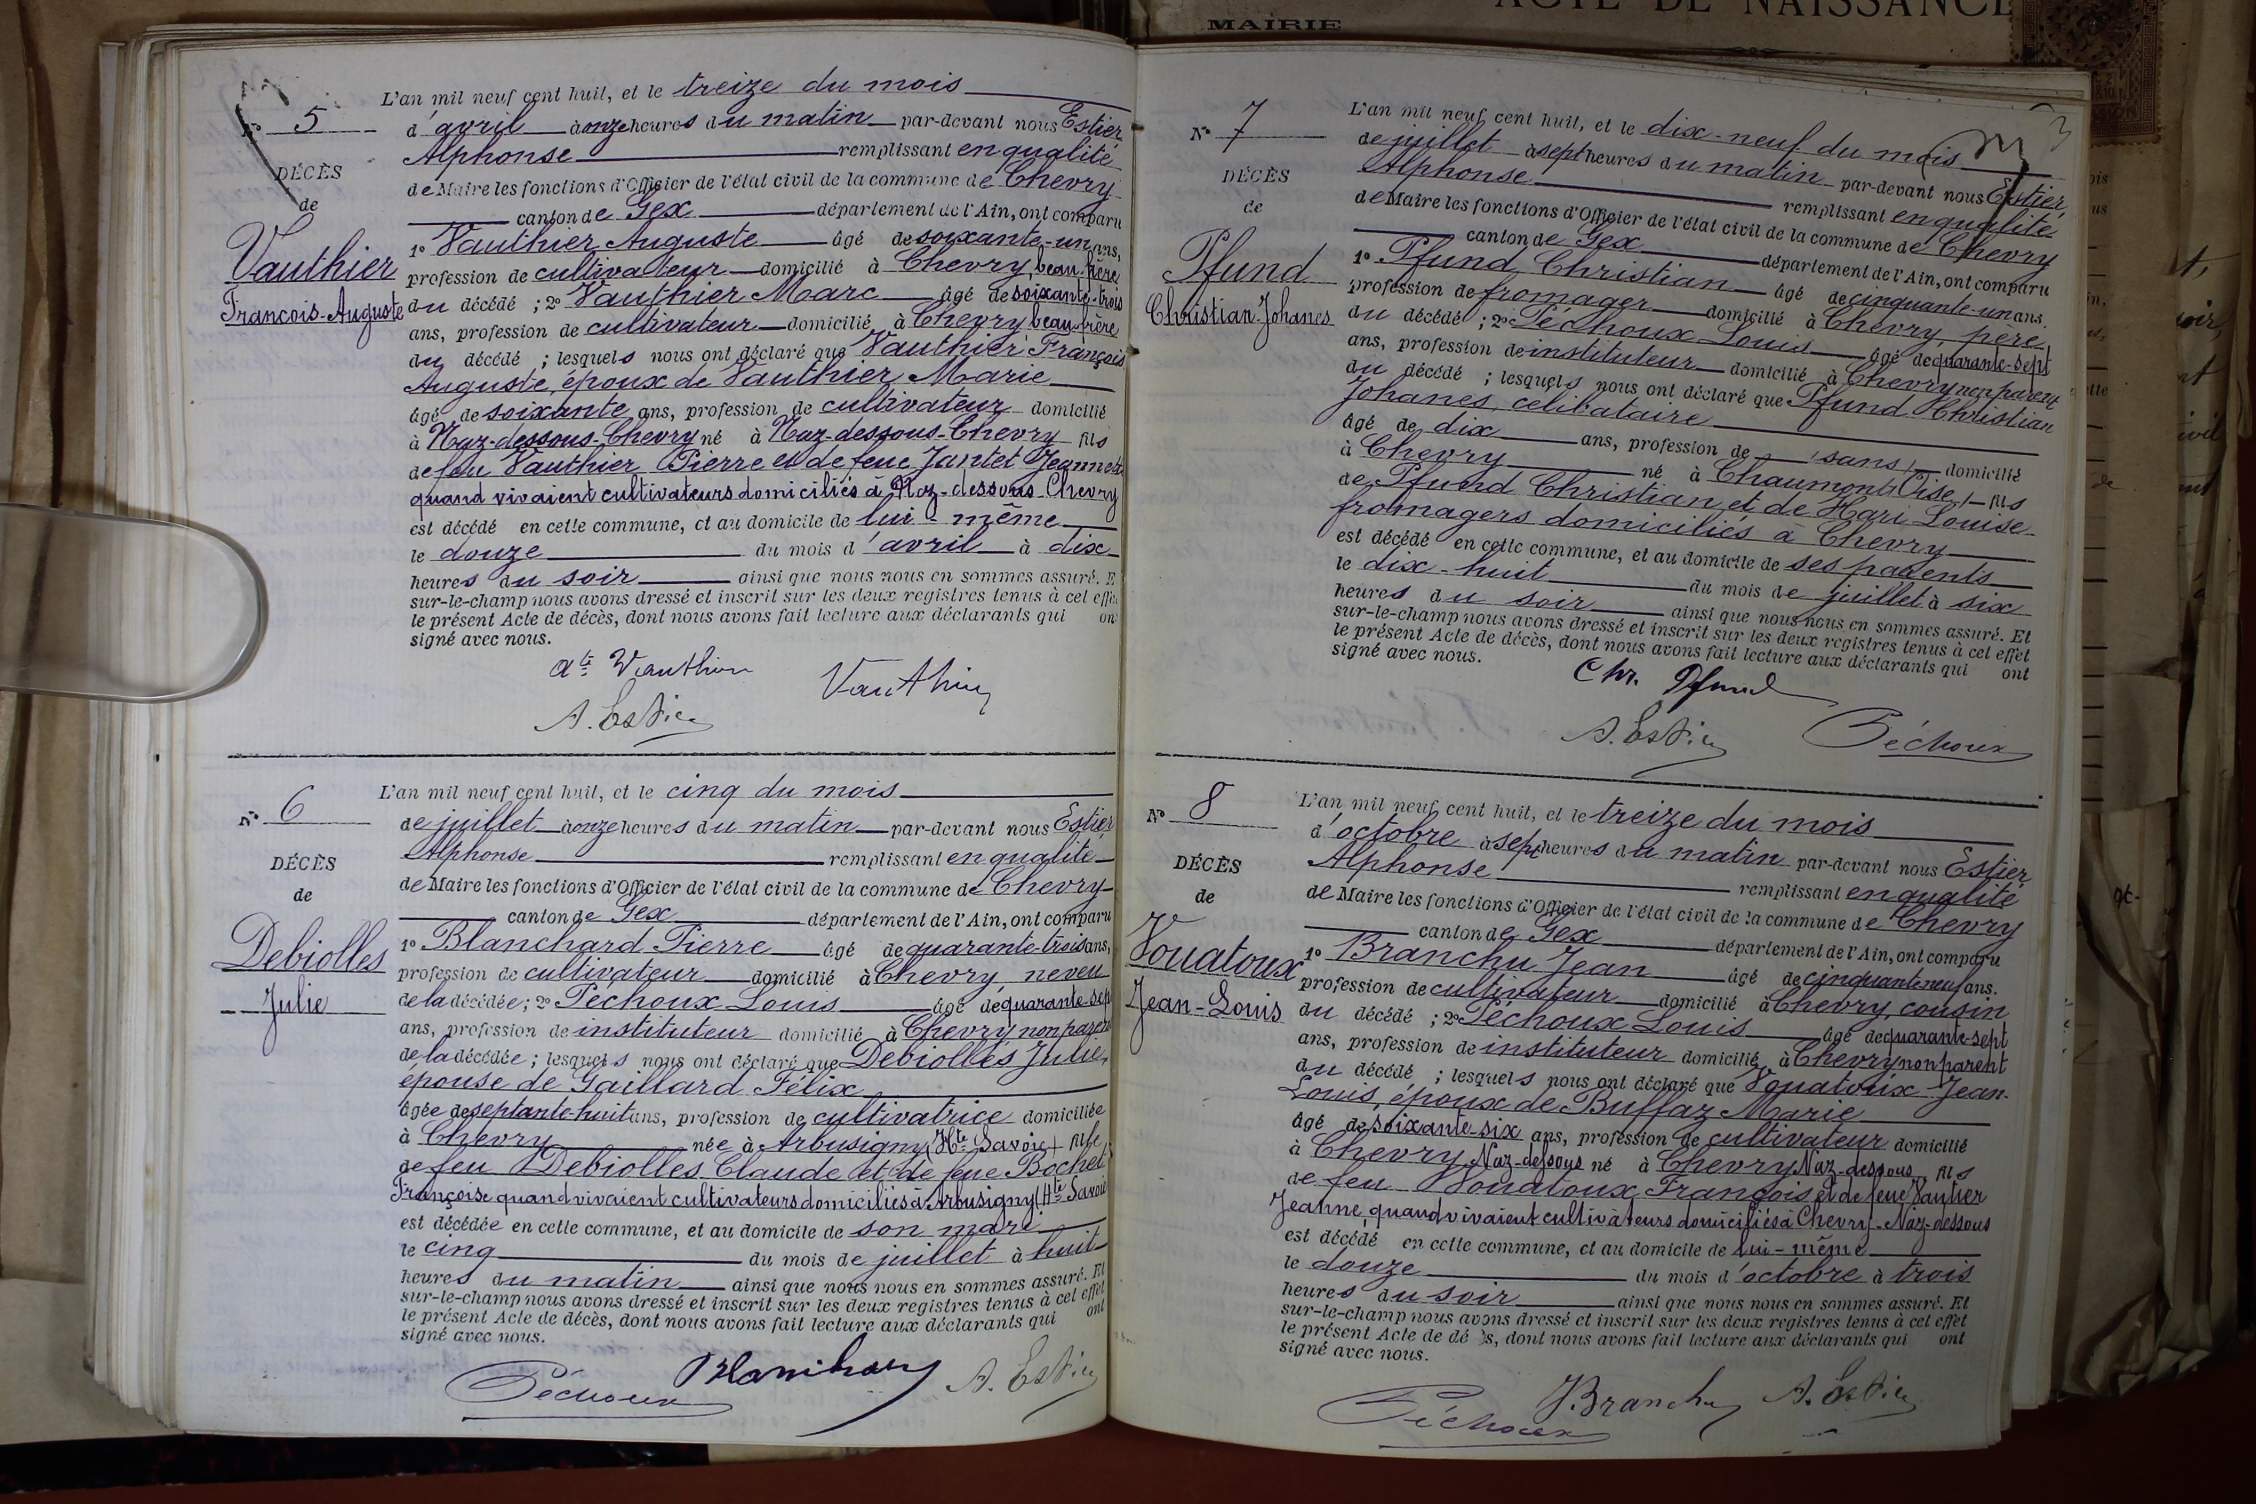 MAIRIE
ACTE DE NAISSANCE
N° 5
DÉCÈS
de
Vauthier
François-Auguste
L'an mil neuf cent huit, et le treize du mois
d'avril à onze heures du matin par-devant nous Estier
Alphonse remplissant en qualité
de Maire les fonctions d'Officier de l'état civil de la commune de Chevry
canton de Gex département de l'Ain, ont comparu
1° Vauthier Auguste âgé de soixante-un ans,
profession de cultivateur domicilié à Chevry, beau-frère
du décédé ; 2° Vauthier Marc âgé de soixante-trois
ans, profession de cultivateur domicilié à Chevry beau-frère
du décédé ; lesquels nous ont déclaré que Vauthier François
Auguste, époux de Vauthier Marie
âgé de soixante ans, profession de cultivateur domicilié
à Naz-dessous-Chevry né à Naz-dessous-Chevry fils
de feu Vauthier Pierre et de feue Jantet Jeannette
quand vivaient cultivateurs domiciliés à Naz-dessous-Chevry
est décédé en cette commune, et au domicile de lui-même
le douze du mois d'avril à dix
heures du soir ainsi que nous nous en sommes assuré. E
sur-le-champ nous avons dressé et inscrit sur les deux registres tenus à cet effe
le présent Acte de décès, dont nous avons fait lecture aux déclarants qui on
signé avec nous.
Ate Vauthier Vauthier
A. Estier
N° 6
DÉCÈS
de
Debiolles
Julie
L'an mil neuf cent huit, et le cinq du mois
de juillet à onze heures du matin par-devant nous Estier
Alphonse remplissant en qualité
de Maire les fonctions d'Officier de l'état civil de la commune de Chevry
canton de Gex département de l'Ain, ont comparu
1° Blanchard Pierre âgé de quarante-trois ans,
profession de cultivateur domicilié à Chevry, neveu
de la décédée ; 2° Péchoux Louis âgé de quarante-sep
ans, profession de instituteur domicilié à Chevry non paren
de la décédée ; lesquels nous ont déclaré que Debiolles Julie,
épouse de Gaillard Félix
âgée de septante-huit ans, profession de cultivatrice domiciliée
à Chevry née à Arbusigny (Hte Savoie) fille
de feu Debiolles Claude et de feue Bochet
Françoise quand vivaient cultivateurs domiciliés à Arbusigny (Hte Savoie
est décédée en cette commune, et au domicile de son mari
le cinq du mois de juillet à huit
heures du matin ainsi que nous nous en sommes assuré. Et
sur-le-champ nous avons dressé et inscrit sur les deux registres tenus à cet effet
le présent Acte de décès, dont nous avons fait lecture aux déclarants qui ont
signé avec nous.
Péchoux Blanchard A. Estier
N° 7
DÉCÈS
de
Pfund
Christian Johanes
L'an mil neuf cent huit, et le dix-neuf du mois
de juillet à sept heures du matin par-devant nous Estier
Alphonse remplissant en qualité
de Maire les fonctions d'Officier de l'état civil de la commune de Chevry
canton de Gex département de l'Ain, ont comparu
1° Pfund Christian âgé de cinquante-un ans,
profession de fromager domicilié à Chevry, père
du décédé ; 2° Péchoux Louis âgé de quarante-sept
ans, profession de instituteur domicilié à Chevry non parent
du décédé ; lesquels nous ont déclaré que Pfund Christian
Johanes, célibataire
âgé de dix ans, profession de (sans) domicilié
à Chevry né à Chaumont (Oise) fils
de Pfund Christian et de Hari Louise
fromagers domiciliés à Chevry
est décédé en cette commune, et au domicile de ses parents
le dix-huit du mois de juillet à six
heures du soir ainsi que nous nous en sommes assuré. Et
sur-le-champ nous avons dressé et inscrit sur les deux registres tenus à cet effet
le présent Acte de décès, dont nous avons fait lecture aux déclarants qui ont
signé avec nous.
Chr. Pfund
A. Estier Péchoux
N° 8
DÉCÈS
de
Vouatoux
Jean-Louis
L'an mil neuf cent huit, et le treize du mois
d'octobre à sept heures du matin par-devant nous Estier
Alphonse remplissant en qualité
de Maire les fonctions d'Officier de l'état civil de la commune de Chevry
canton de Gex département de l'Ain, ont comparu
1° Branchu Jean âgé de cinquante neuf ans.
profession de cultivateur domicilié à Chevry, cousin
du décédé ; 2° Péchoux Louis âgé de quarante-sept
ans, profession de instituteur domicilié à Chevry non parent
du décédé ; lesquels nous ont déclaré que Vouatoux Jean-
Louis, époux de Buffaz Marie
âgé de soixante-six ans, profession de cultivateur domicilié
à Chevry Naz-dessous né à Chevry Naz-dessous fils
de feu Vouatoux François et de feue Vautier
Jeanne, quand vivaient cultivateurs domiciliés à Chevry-Naz-dessous
est décédé en cette commune, et au domicile de lui-même
le douze du mois d'octobre à trois
heures du soir ainsi que nous nous en sommes assuré. Et
sur-le-champ nous avons dressé et inscrit sur les deux registres tenus à cet effet
le présent Acte de dé s, dont nous avons fait lecture aux déclarants qui ont
signé avec nous.
Péchoux J. Branchu A. Estier